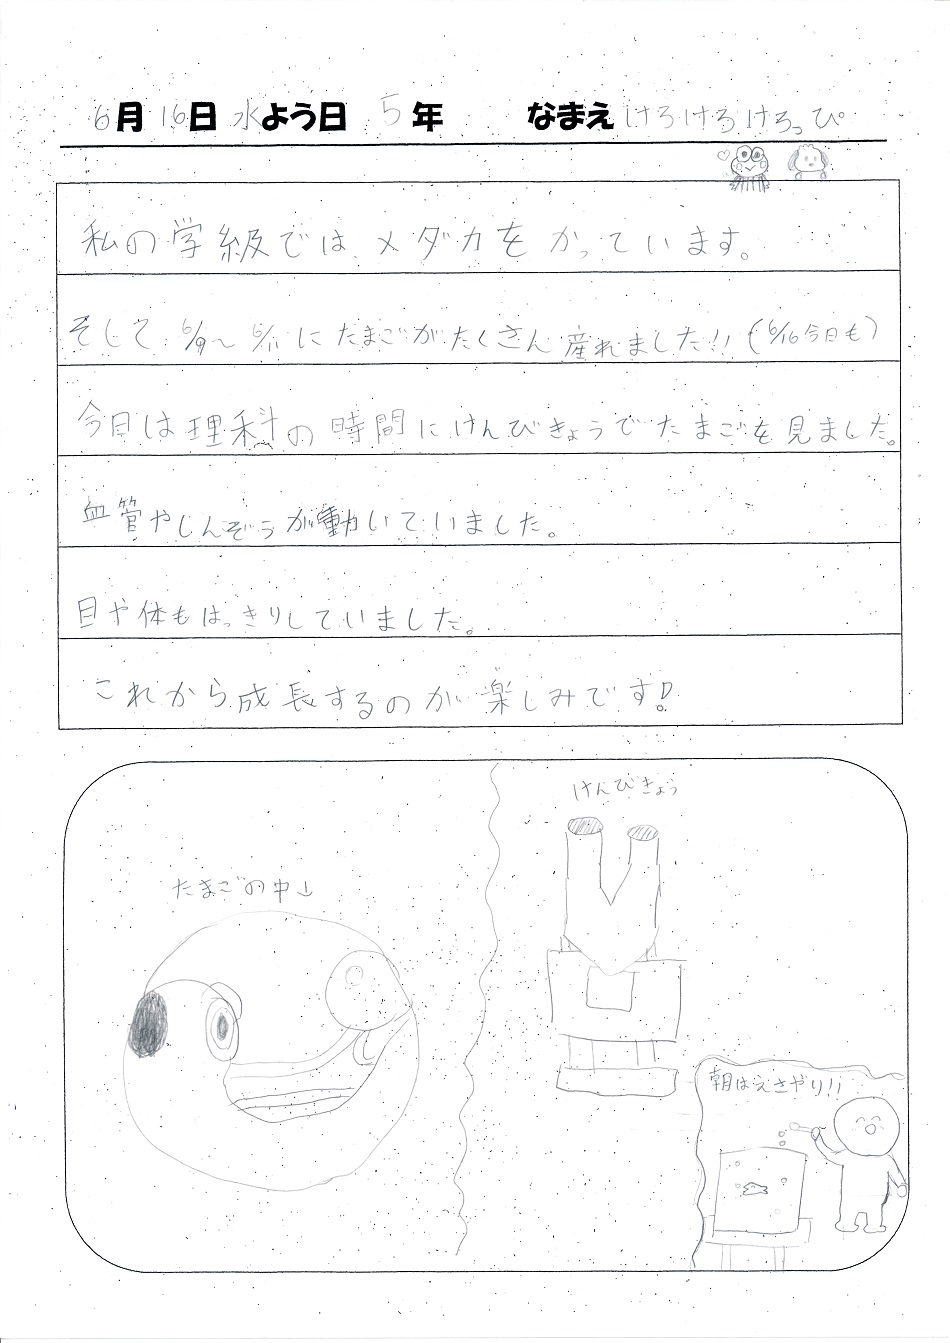 6月16日 水よう日 5年 なまえ けろけろけろっぴ
私の学級では、メダカをかっています。
そして、6/9〜6/11にたまごがたくさん産れました!!(6/16今日も)
今日は理科の時間にけんびきょうでたまごを見ました。
血管やしんぞうが動いていました。
目や体もはっきりしていました。
これから成長するのが楽しみです!
けんびきょう
たまごの中↓
朝はえさやり!!